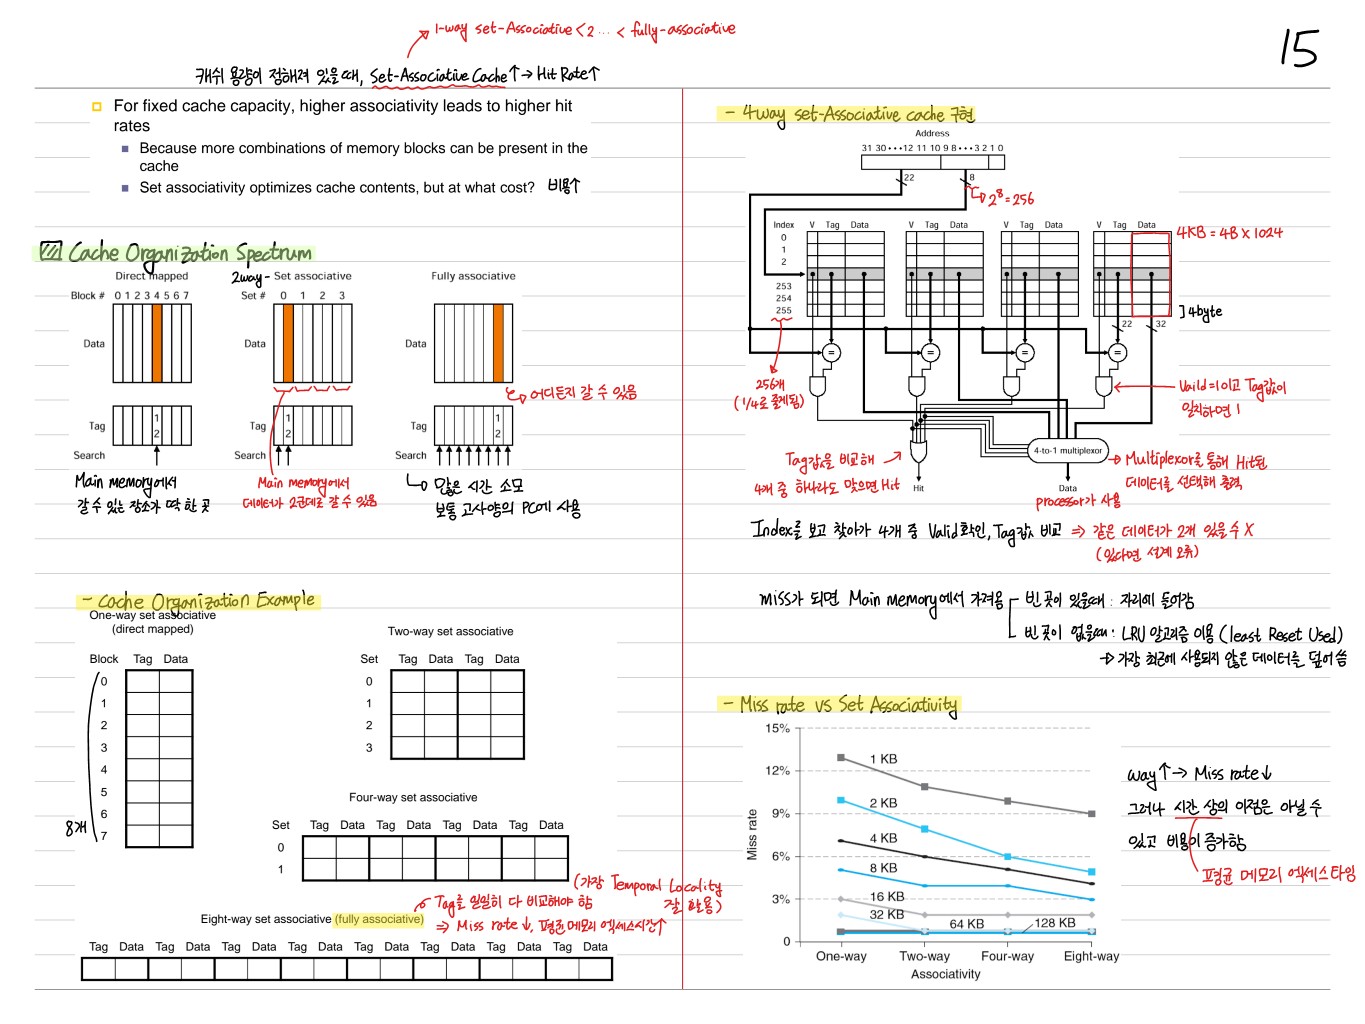 1-way set-Associative < 2 … < fully-associative
15
캐쉬 용량이 정해져 있을 때, Set-Associative Cache↑ → Hit Rate↑
For fixed cache capacity, higher associativity leads to higher hit
rates
Because more combinations of memory blocks can be present in the
cache
Set associativity optimizes cache contents, but at what cost? 비용↑
Cache Organization Spectrum
Direct mapped
2way- Set associative
Fully associative
Block # 0 1 2 3 4 5 6 7
Set # 0 1 2 3
Data
Data
Data
어디든지 갈 수 있음
Tag 1 2
Tag 1 2
Tag 1 2
Search
Search
Search
Main memory에서
갈 수 있는 장소가 딱 한 곳
Main memory에서
데이터가 2군데로 갈 수 있음
많은 시간 소모
보통 고사양의 PC에 사용
- Cache Organization Example
One-way set associative
(direct mapped)
Block Tag Data
0
1
2
3
4
5
6
7
8개
Two-way set associative
Set Tag Data Tag Data
0
1
2
3
Four-way set associative
Set Tag Data Tag Data Tag Data Tag Data
0
1
(가장 Temporal Locality
잘 활용)
Tag를 일일히 다 비교해야 함
Eight-way set associative (fully associative)
⇒ Miss rate↓, 평균 메모리 엑세스시간↑
Tag Data Tag Data Tag Data Tag Data Tag Data Tag Data Tag Data Tag Data
- 4way set-Associative cache 구현
Address
31 30 ••• 12 11 10 9 8 ••• 3 2 1 0
22
8
2⁸=256
Index V Tag Data V Tag Data V Tag Data V Tag Data
0
1
2
253
254
255
4KB = 4B x 1024
]4byte
22
32
= = = =
256개
(1/4로 줄게됨)
Vaild=1이고 Tag값이
일치하면 1
4-to-1 multiplexor
Tag값을 비교해
4개 중 하나라도 맞으면 Hit
Hit
Data
Multiplexor를 통해 Hit된
데이터를 선택해 출력
processor가 사용
Index를 보고 찾아가 4개 중 Vaild확인, Tag값 비교 ⇒ 같은 데이터가 2개 있을 수 X
(있다면 설계 오류)
miss가 되면 Main memory에서 가져옴
빈 곳이 있을때 : 자리에 들어감
빈 곳이 없을때 : LRU 알고리즘 이용 (least Reset Used)
→ 가장 최근에 사용되지 않은 데이터를 덮어씀
- Miss rate vs Set Associativity
15%
12%
9%
6%
3%
0
Miss rate
1 KB
2 KB
4 KB
8 KB
16 KB
32 KB
64 KB
128 KB
One-way Two-way Four-way Eight-way
Associativity
way↑ → Miss rate↓
그러나 시간 상의 이점은 아닐 수
있고 비용이 증가함
평균 메모리 엑세스타임